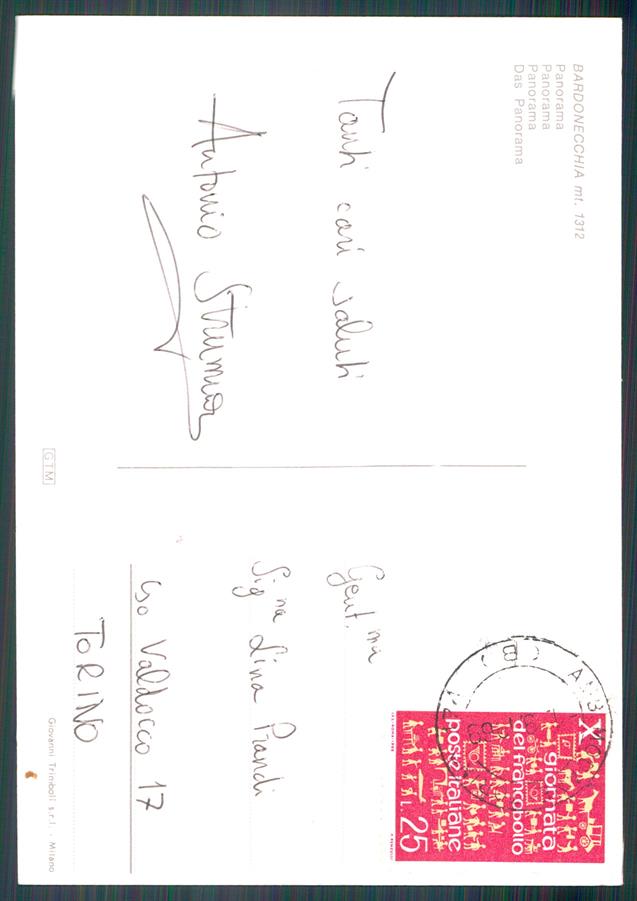 BARDONECCHIA mt. 1312
Panorama
Panorama
Panorama
Das Panorama
Tanti cari saluti
Antonio
G.T.M
Gent.ma
Sig.na Lina Prandi
Cso Valdocco 17
TORINO
X giornata
del francobollo
poste italiane L. 25
Giovanni Trimboli s.r.l. - Milano